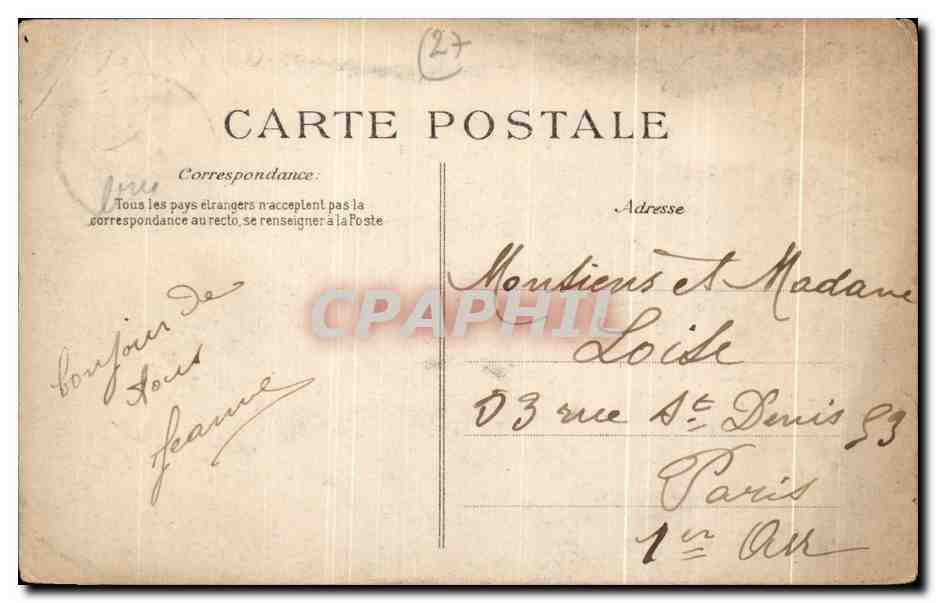 27
CARTE POSTALE
Correspondance:
Tous les pays étrangers n'acceptent pas la
correspondance au recto, se renseigner à la Poste
bonjour de
tous
Jeanne
Adresse
Monsieur et Madame
Loise
03 rue St Denis 53
Paris
1er Arr
CPAPHIL